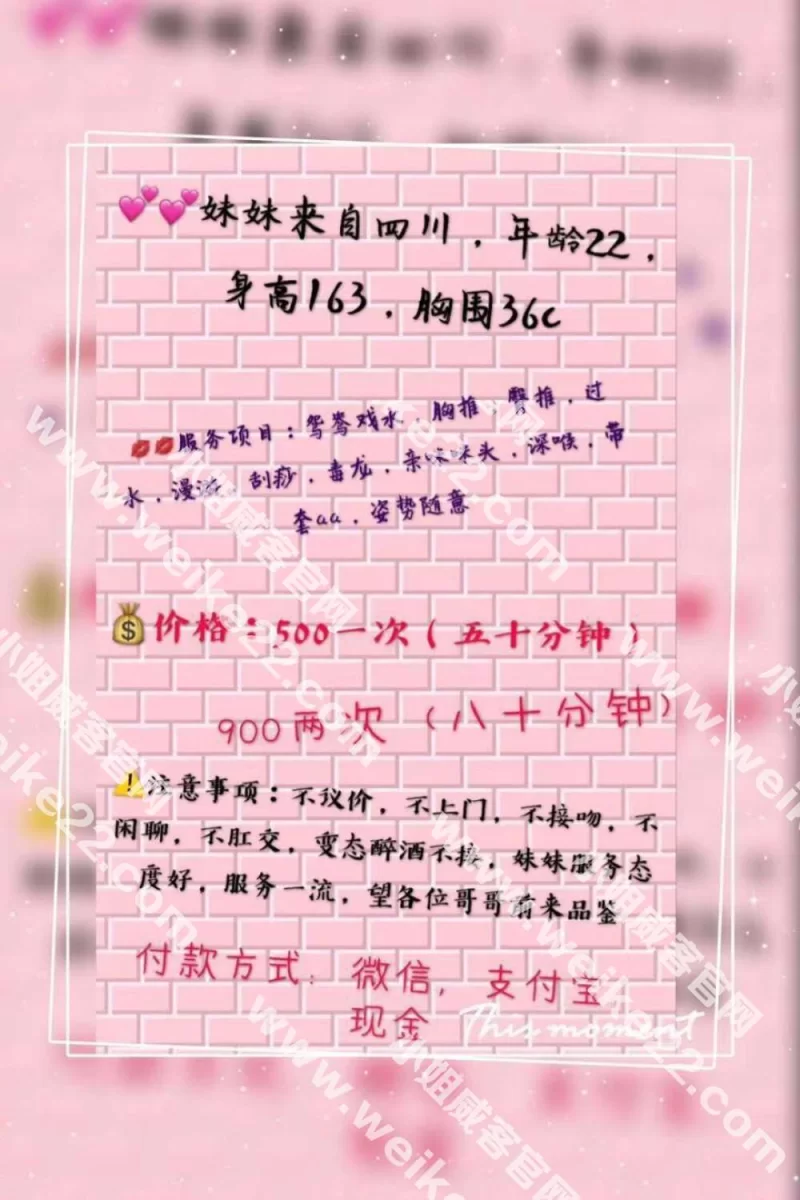 妹妹来自四川，年龄22，
身高163，胸围36c
服务项目：鸳鸯戏水 胸推，臀推，过
水，漫游，刮痧，毒龙，亲咪咪头，深喉，带
套aa，姿势随意
价格：500一次（五十分钟）
900两次（八十分钟）
注意事项：不议价，不上门，不接吻，不
闲聊，不肛交，变态醉酒不接，妹妹服务态
度好，服务一流，望各位哥哥前来品鉴
付款方式：微信，支付宝
现金
This moment
小姐威客官网
www.weike22.com